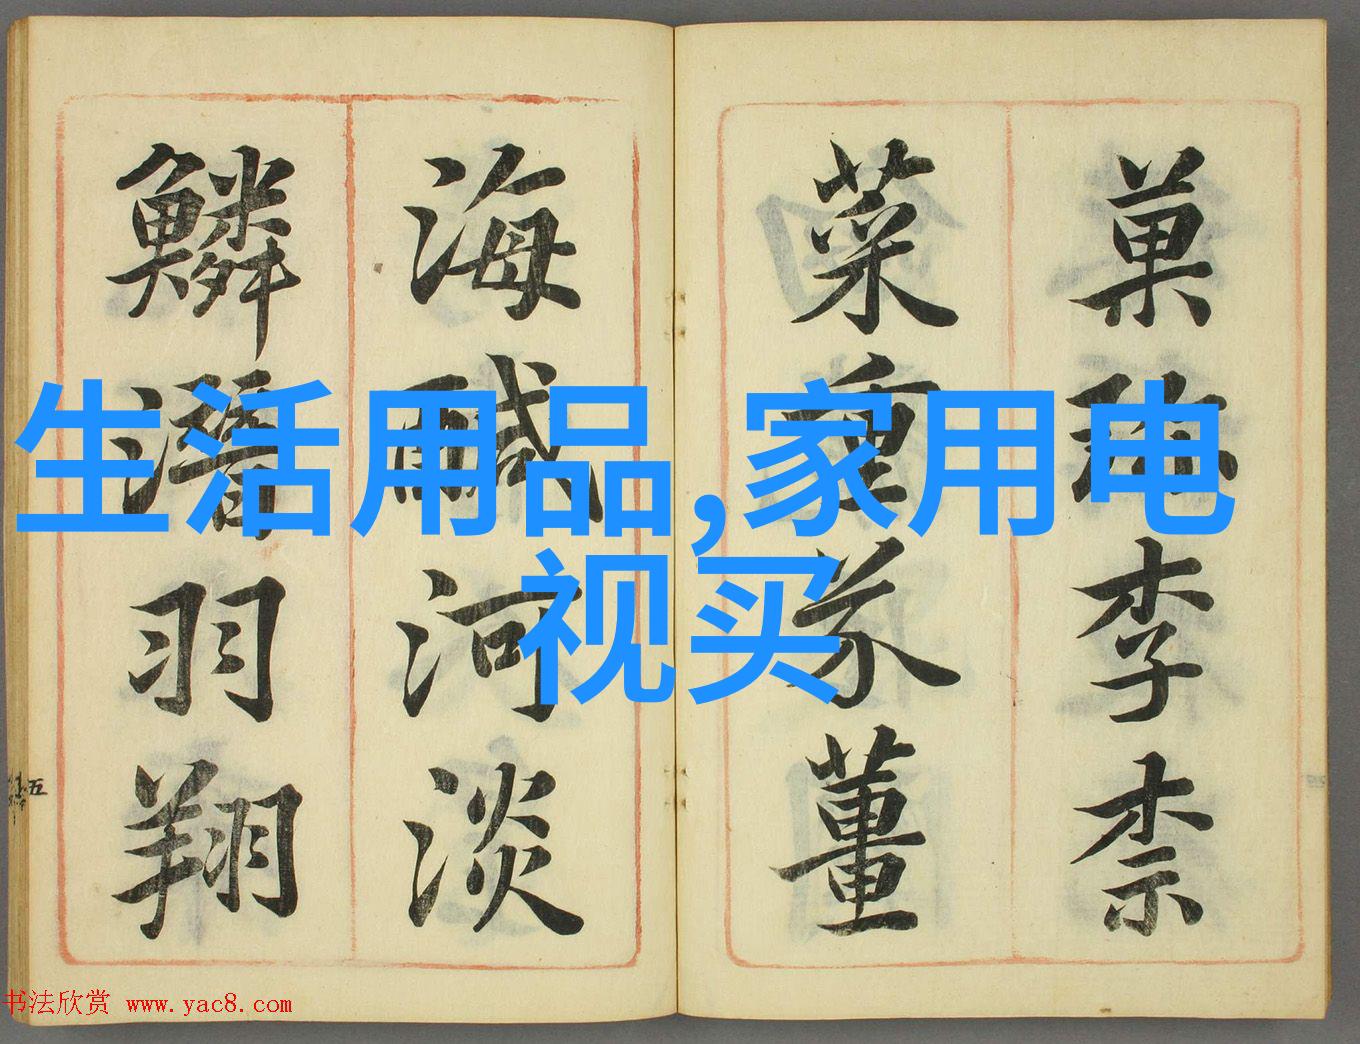 菓珍李柰
菜重芥薑
海醎河淡
鱗潛羽翔
五
生活用品,家用电
视买
书法欣赏 www.yac8.com